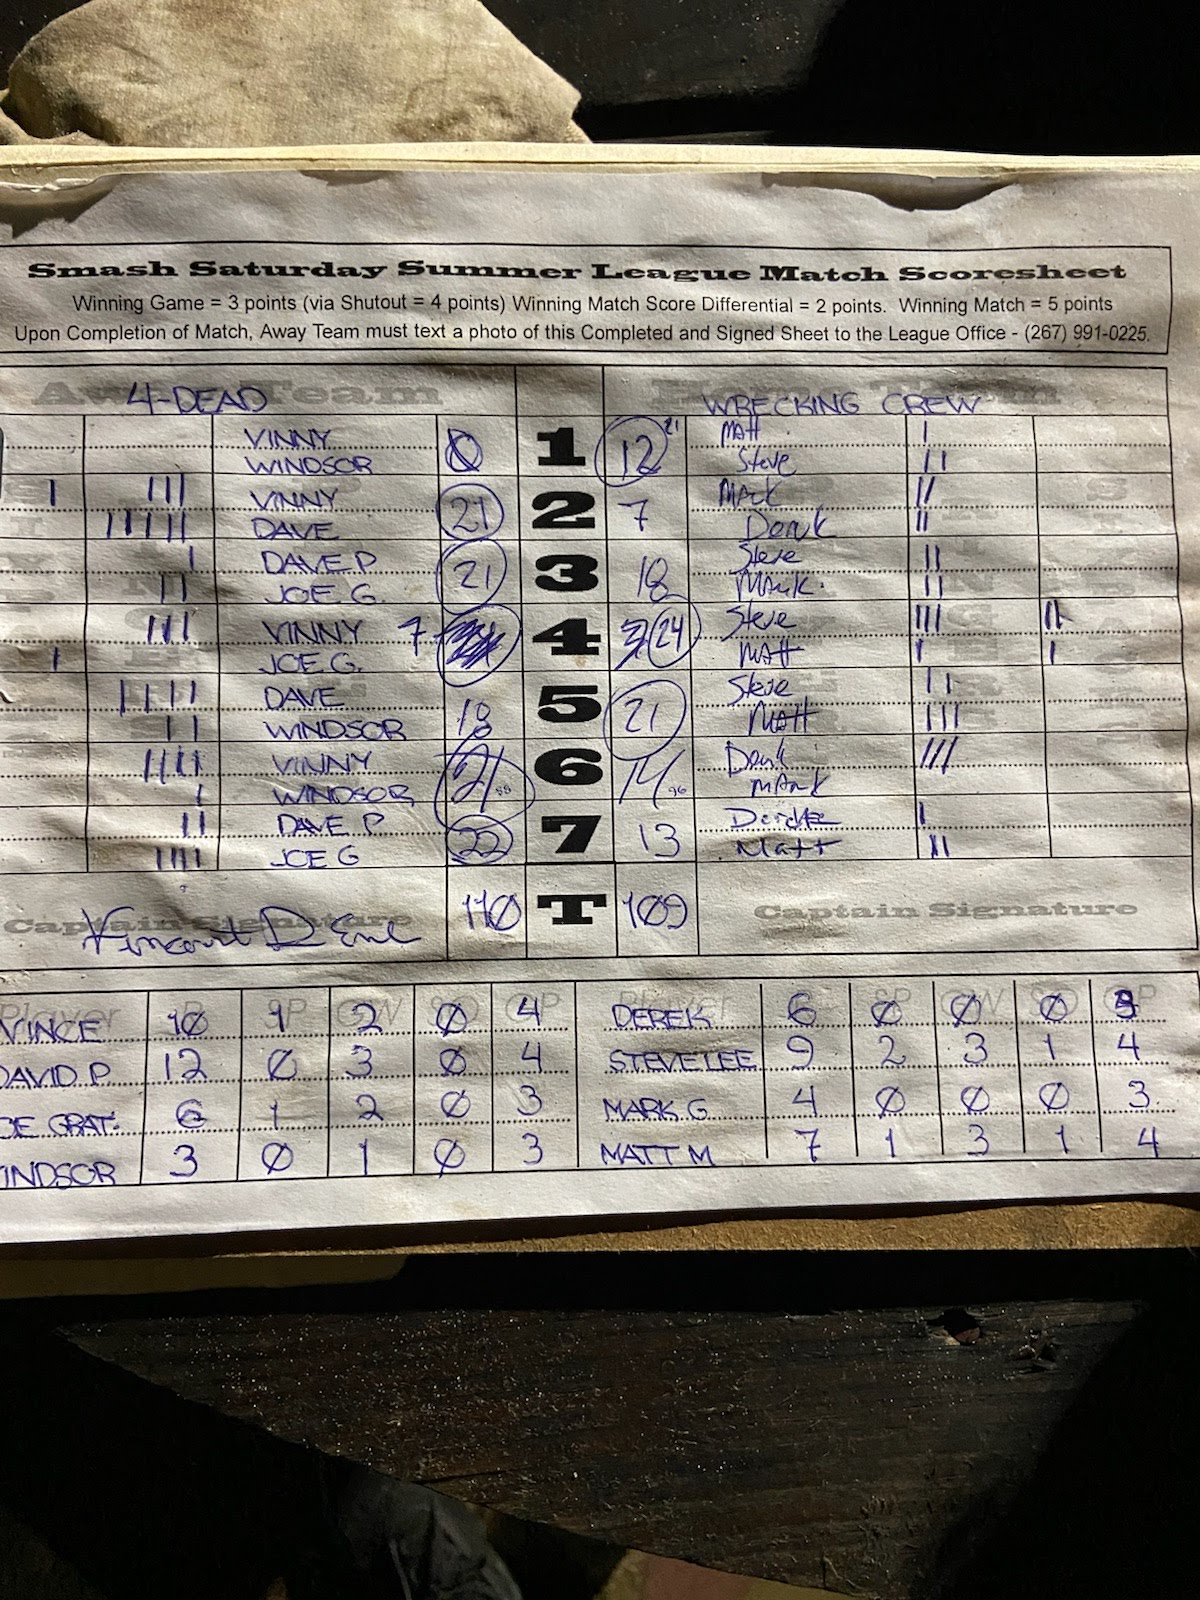 Smash Saturday Summer League Match Scoresheet
Winning Game = 3 points (via Shutout = 4 points) Winning Match Score Differential = 2 points. Winning Match = 5 points
Upon Completion of Match, Away Team must text a photo of this Completed and Signed Sheet to the League Office - (267) 991-0225.
Away Team Home Team
4-DEAD WRECKING CREW
VINNY Matt I
WINDSOR Ø 1 12 21 Steve II
I III VINNY Mark II
IIIII DAVE 21 2 7 Derek II
I DAVE P Steve II
II JOE G. 21 3 18 Mark. II
III VINNY 7 4 24 Steve III II
I JOE G. Matt I I
IIIII DAVE Steve II
II WINDSOR 18 5 21 Matt III
IIII VINNY Derek III
I WINDSOR 21 88 6 14 96 Mark
II DAVE P Derek I
IIII JOE G 22 7 13 Matt II
Captain Signature 110 T 109 Captain Signature
Player P SP GW SO GP Player P SP GW SO GP
VINCE 10 1 2 Ø 4 DEREK 6 Ø Ø Ø 3
DAVID P 12 Ø 3 Ø 4 STEVE LEE 9 2 3 1 4
OE GRAT. 6 1 2 Ø 3 MARK G 4 Ø Ø Ø 3
INDSOR 3 Ø 1 Ø 3 MATT M 7 1 3 1 4